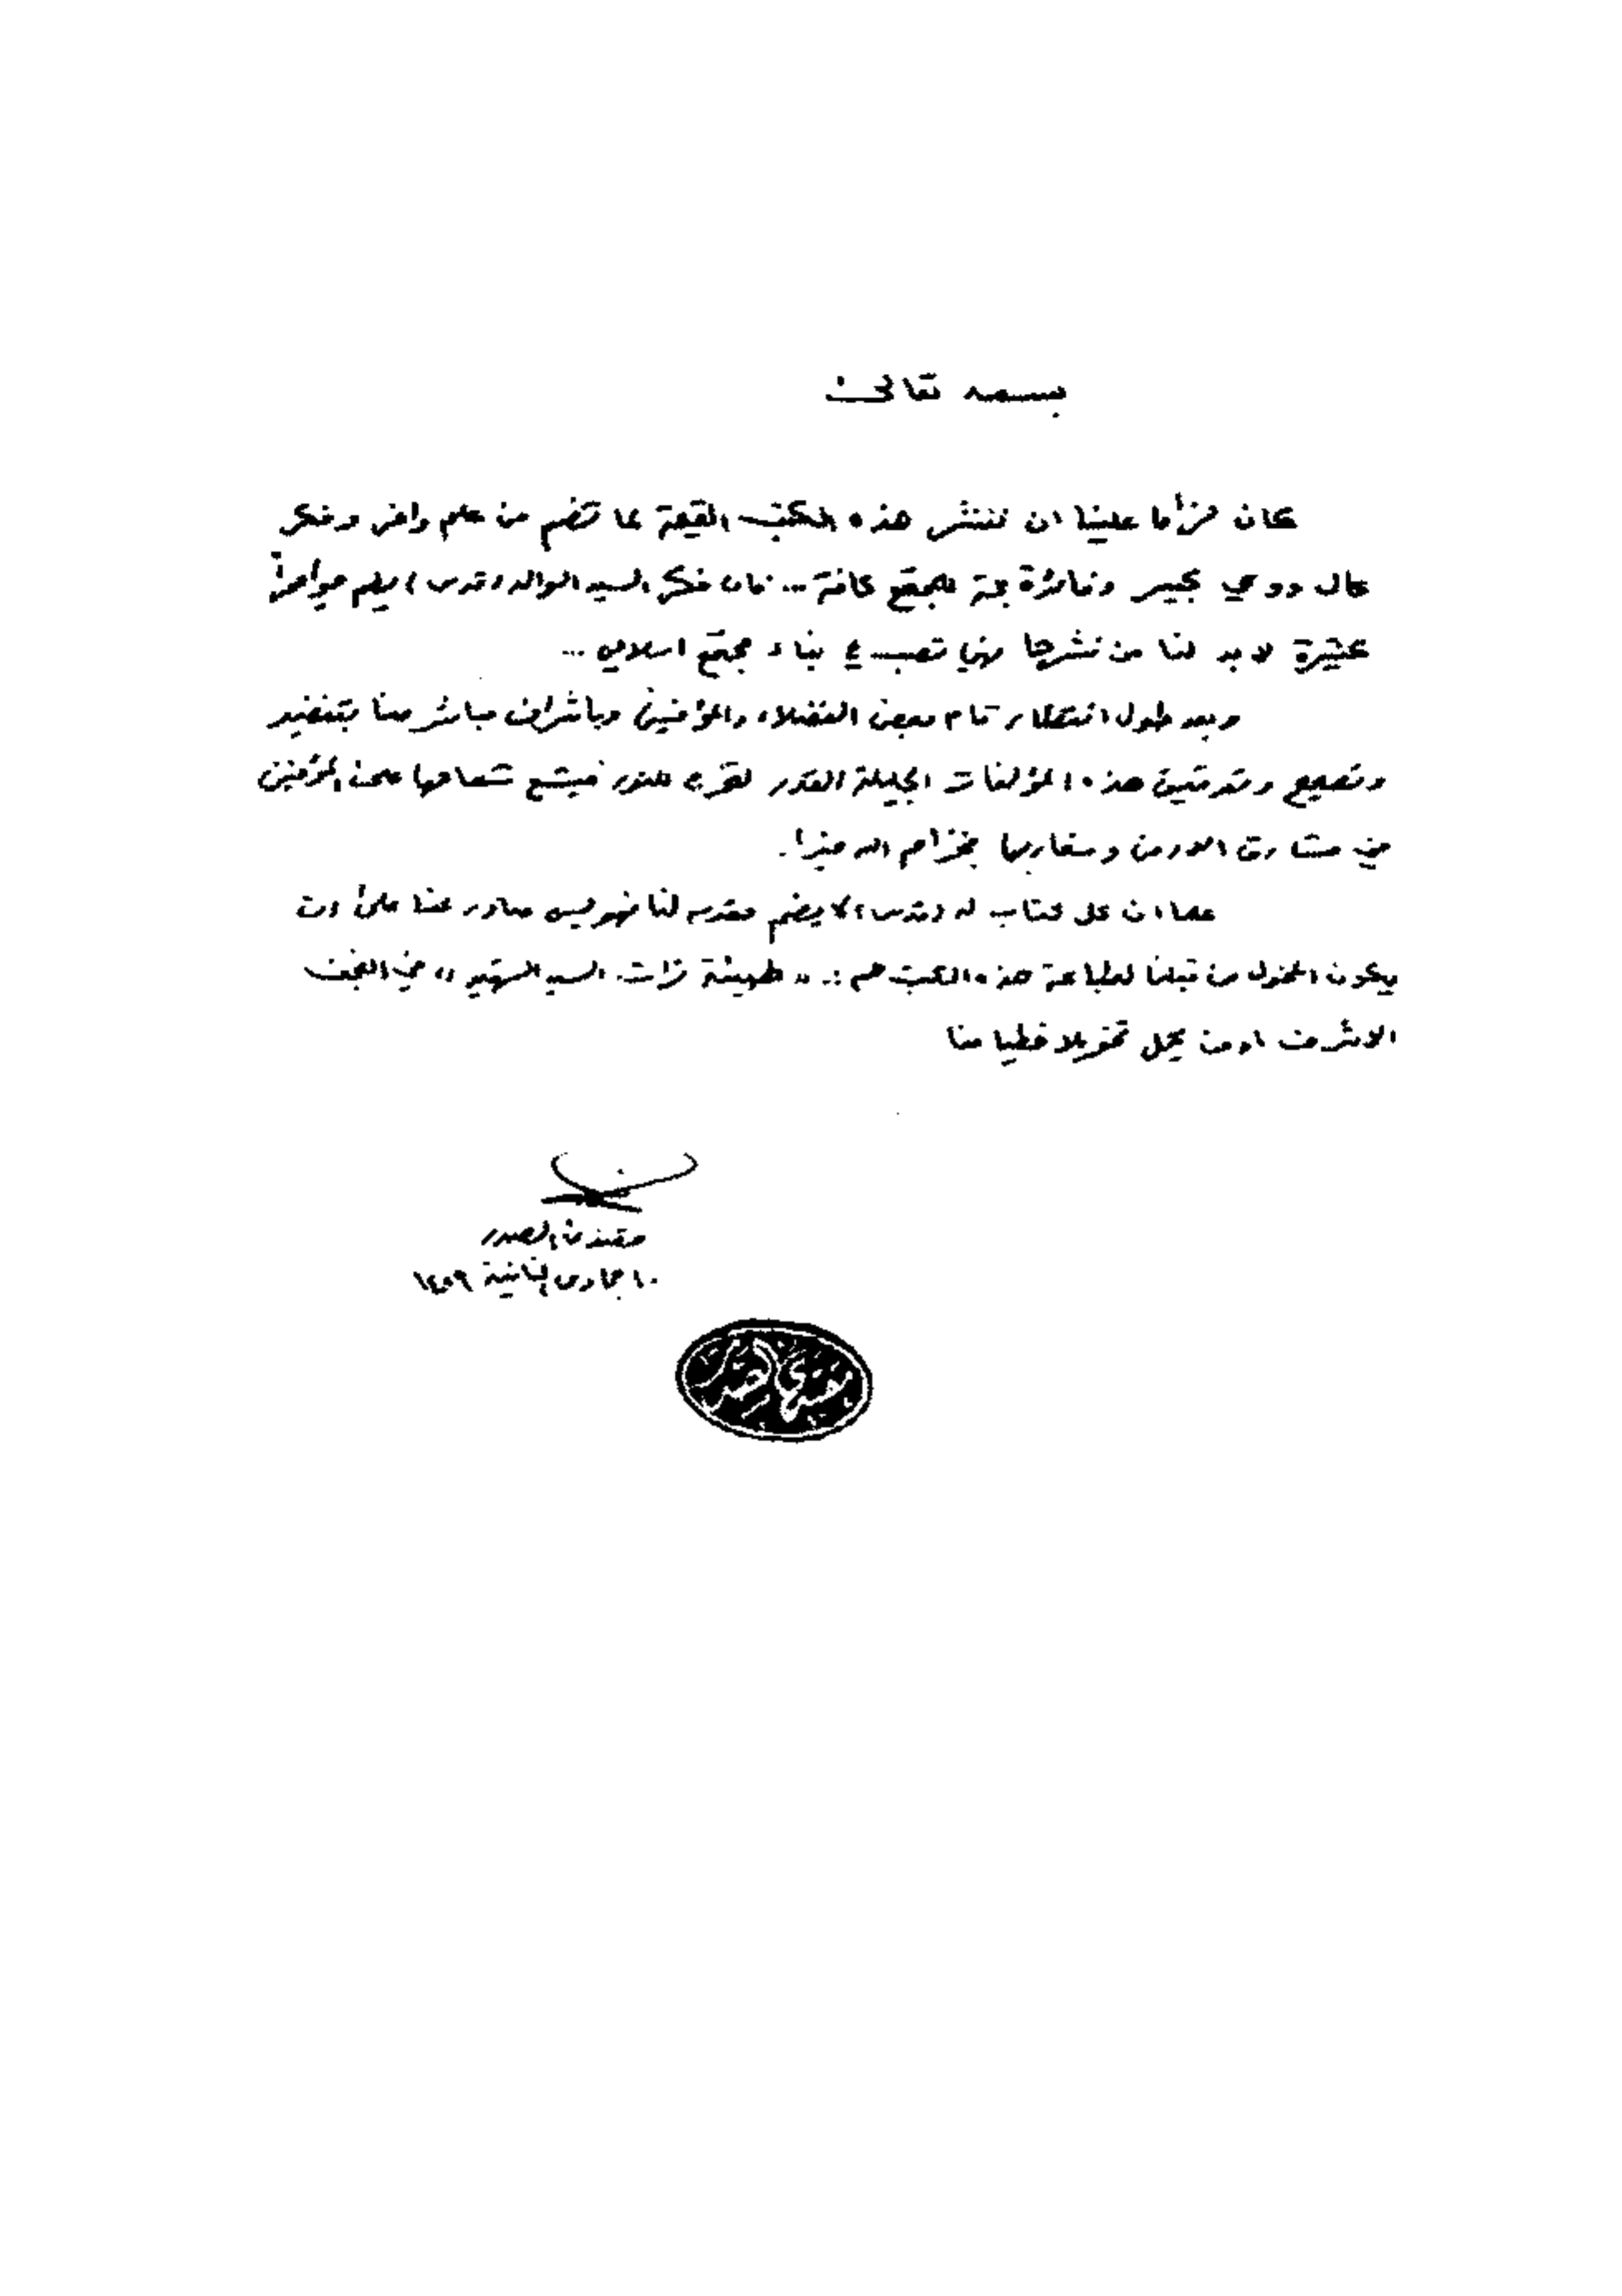 بسمه تعالى
كان لزاما علينا ان ننشر هذه الكتب القيمة لما تضم من علم وافر وفكر
عال ووعي كبير وفائدة جمة للمجتمع كافة ... فان فكر السيد الوالد (قدس)
كثيرة لابد لنا من نشرها فهي تصب في بناء مجتمع اسلامي ...
وبعد طول انتظار قام بعض الفضلاء والمؤمنين وباشراف مباشر منا بتنضيد
وتصحيح هذه المؤلفات الجليلة القدر لتخرج للنور فيشع شعاعها على المؤمنين
في مشارق الارض ومغاربها فجزاهم الله خيرا.
علما ان كل كتاب له (قدس) لا يضم مقدمة لنا فهو ليس صادر عنا على ان
يكون المخول من قبلنا لطباعة هذه الكتب هم :. " هيئة تراث السيد الشهيد " في النجف
الاشرف او من يحمل تخويلا خطيا منا
مقتدى الصدر
١٠ جمادى الثانية ١٤٢٩